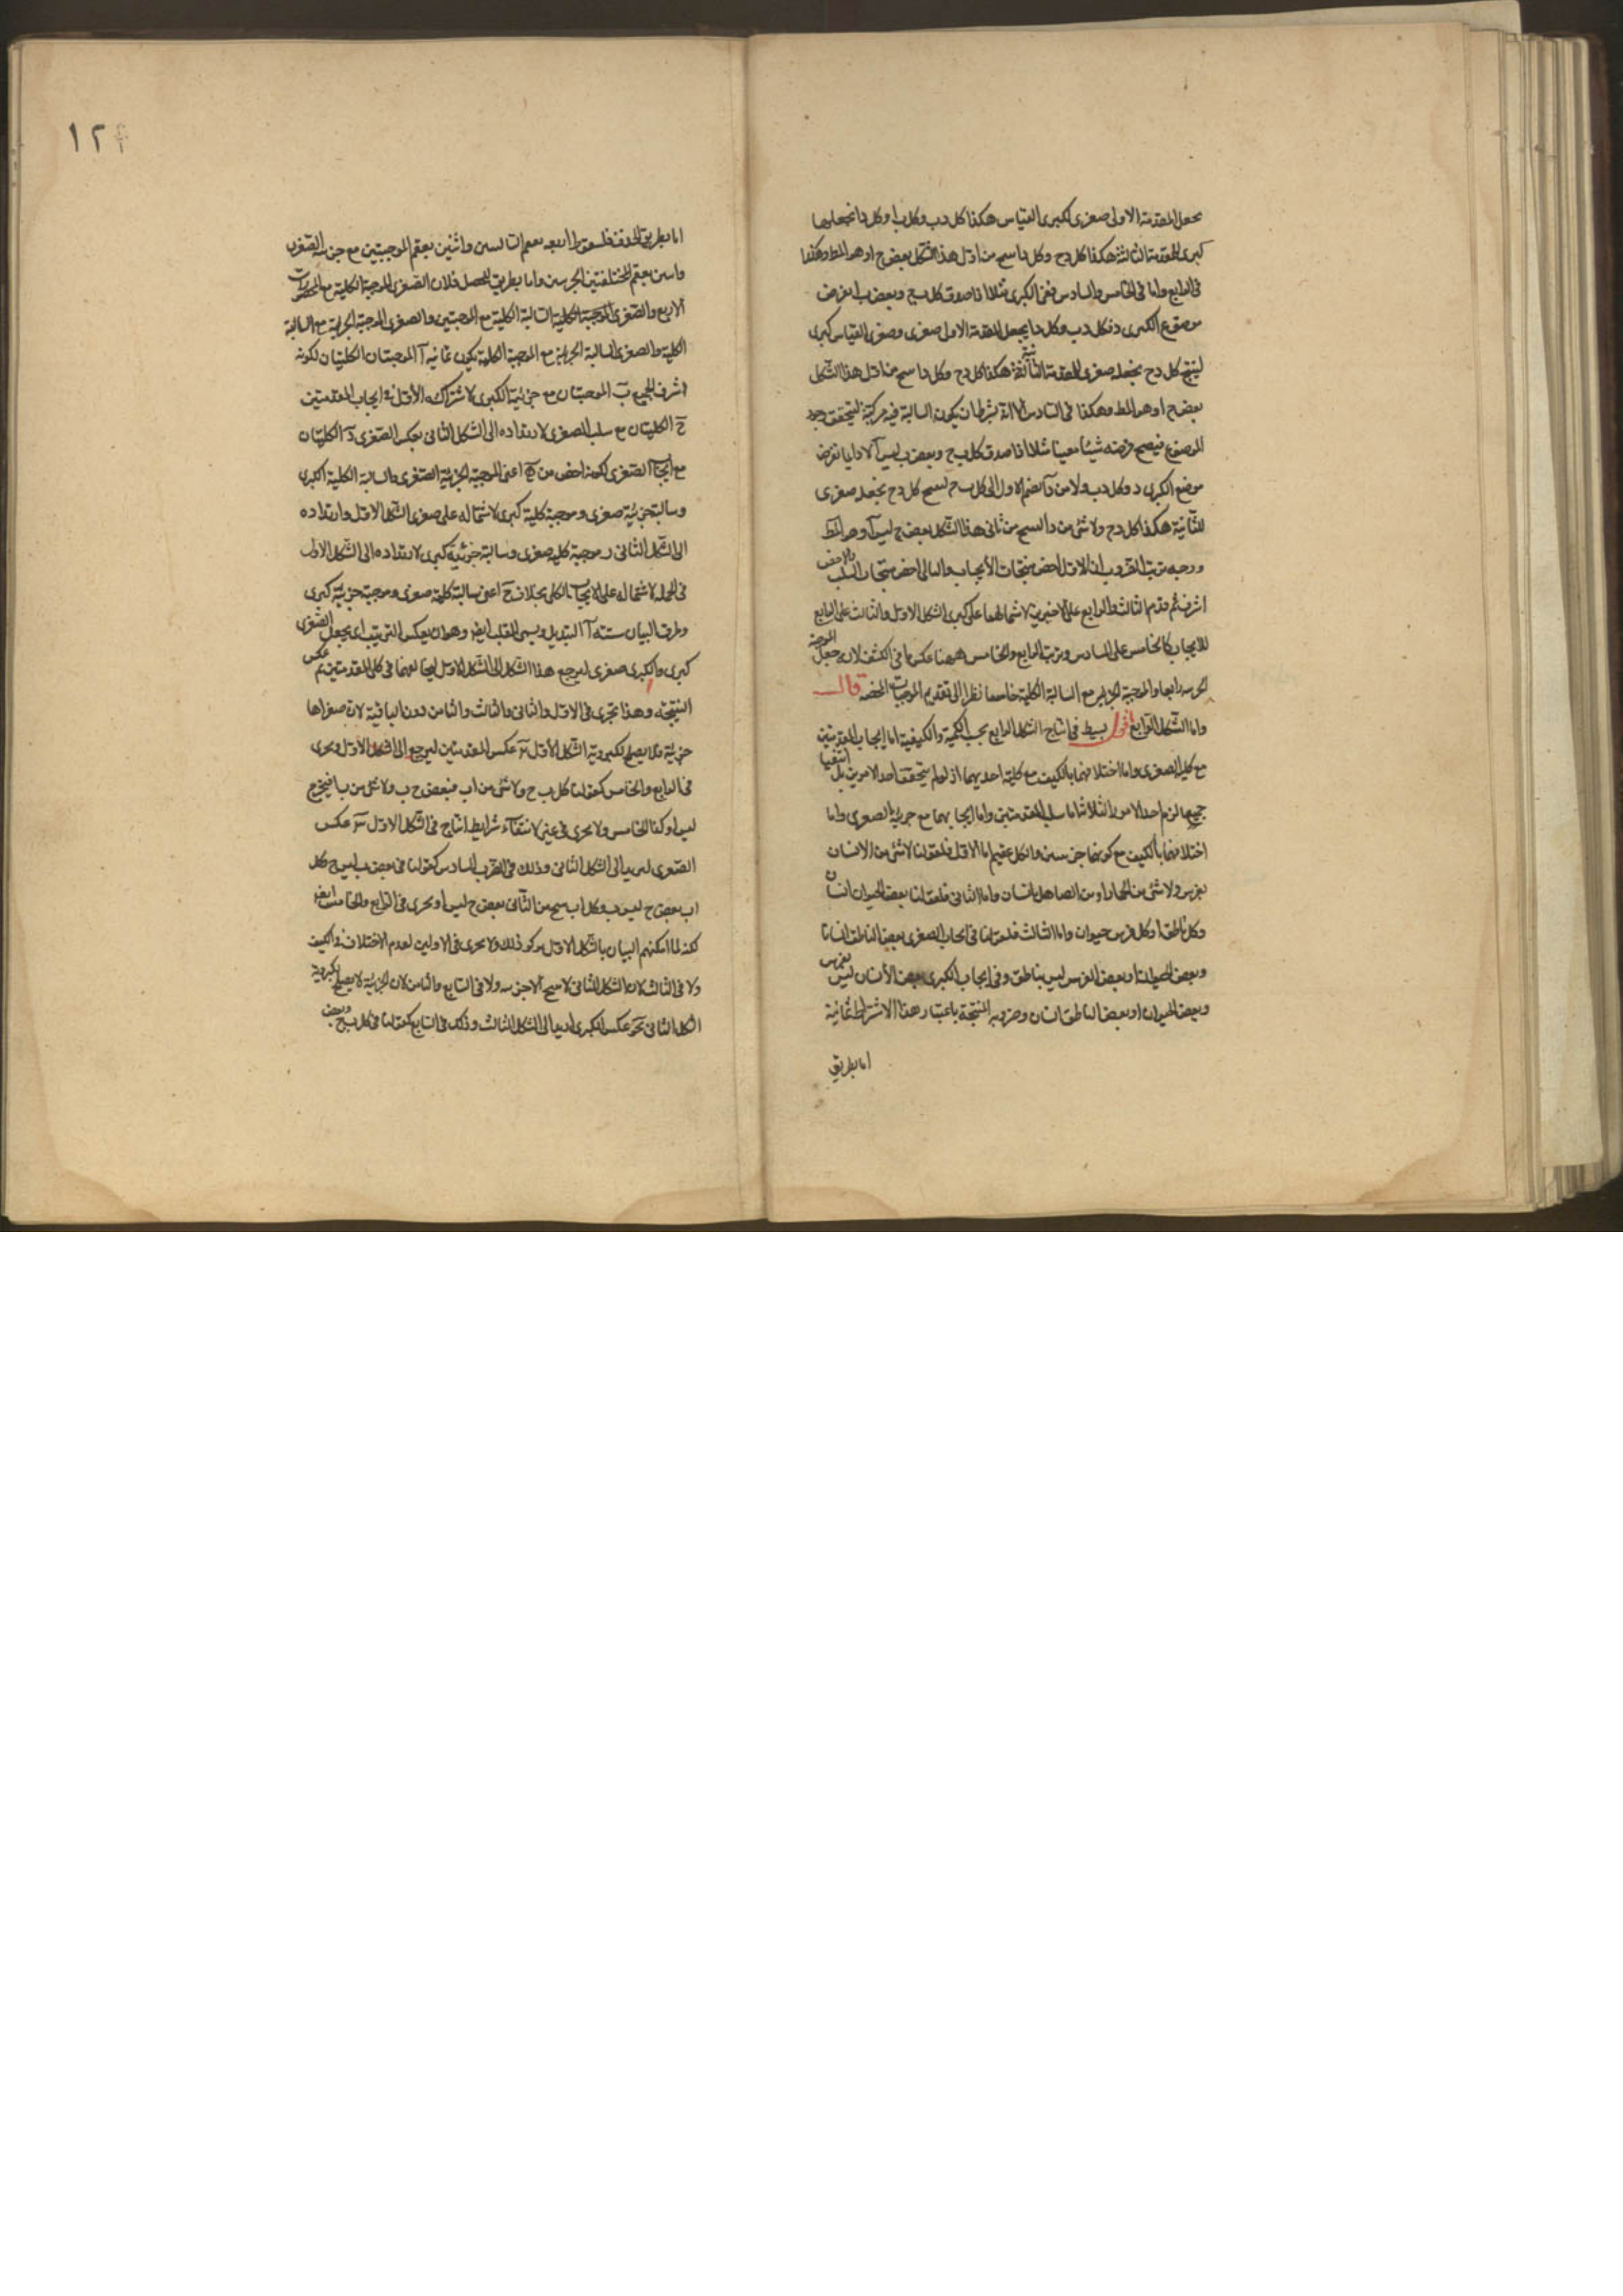 يجعل المقدمة الاولى صغرى لكبرى القياس هكذا كل دب وكل با وكل دا نجعلها
كبرى للمقدمة الثالثة هكذا كل دح وكل دا ينتج من اول هذا الشكل بعض ح ا وهو المط وهكذا
فى الرابع واما فى الخامس والسادس ففى الكبرى مثلا اذا صدق كل بح وبعض با نفرض
موضوع الكبرى د فكل دب وكل دا يجعل المقدمة الاولى صغرى وصغرى القياس كبرى
لينتج كل دح نجعله صغرى للمقدمة الثانية هكذا كل دح وكل دا ينتج من اول هذا الشكل
بعض ح ا وهو المط وهكذا فى السادس الا انه بشرط ان يكون السالبة فيه مركبة ليتحقق وجود
الموضوع فيصح فرضه شيئا معينا مثلا اذا صدق كل بح وبعض ب ليس آ لا دايما نفرض
موضوع الكبرى د وكل دب ولا من د آ نضم الاول الى كل بح لينتج كل دح نجعله صغرى
للثانية هكذا كل دح ولا شئ من د ا لينتج من ثانى هذا الشكل بعض ح ليس آ وهو المط
ووجه ترتيب الضروب ان الاول اخص منتجات الأيجاب والثانى اخص منتجات السلب والاخص
اشرف ثم قدم الثالث والرابع على الاخيرين لاشتمالهما على كبرى الشكل الاول والثالث على الرابع
للايجاب كالخامس على السادس وترتيب الرابع والخامس ههنا عكس ما فى الكشف لانه جعل الموجبة
الجزئيه رابعا والموجبة الجزئية مع السالبة الكلية خامسا نظرا الى تقديم الموجبات المحضة قال
واما الشكل الرابع اقول يشترط فى انتاج الشكل الرابع بحسب الكمية والكيفية اما إيجاب المقدمتين
مع كلية الصغرى واما اختلافهما بالكيف مع كلية احديهما اذ لو لم يتحقق احد الامرين بل انتفيا
جميعا لزم احد الامور الثلاثة اما سلب المقدمتين واما ايجابهما مع جزئية الصغرى واما
اختلافهما بألكيف مع كونهما جزئيتين والكل عقيم اما الاول فلقولنا لاشئ من الانسان
بفرس ولا شئ من الحمار او من الصاهل بانسان واما الثانى فلقولنا بعض الحيوان انسان
وكل ناطق او كل فرس حيوان واما الثالث فلقولنا فى ايجاب الصغرى بعض الناطق انسان
وبعض الحيوان او بعض الفرس ليس بناطق وفى إيجاب الكبرى بعض الأنسان ليس بفرس
وبعض الحيوان او بعض الناطق انسان وضروبه المنتجة باعتبار هذا الاشتراط ثمانية
اما بطريق
١٢٤
اما بطريق الحذف فلسقوط اربعة بعقم السالبتين واثنين بعقم الموجبتين مع جزئية الصغرى
واثنين بعقم المختلفتين الجزئيتين واما بطريق التحصيل فلان الصغرى الموجبة الكلية مع المحصورات
الاربع والصغرى السالبة الكلية مع الموجبتين والصغرى الموجبة الجزئية مع السالبة
الكلية والصغرى السالبة الجزئية مع الموجبة الكلية يكون ثمانية آ الموجبتان الكليتان لكونه
اشرف الجميع ب الموجبتان مع جزئية الكبرى لاشتراكه الأول فى ايجاب المقدمتين
ج الكليتان مع سلب الصغرى لارتداده الى الشكل الثانى بعكس الصغرى د الكليتان
مع ايجاب الصغرى لكونه اخص من ه اعنى الموجبة الجزئية الصغرى والسالبة الكلية الكبرى
وسالبة جزئية صغرى وموجبة كلية كبرى لاشتماله على صغرى الشكل الاول وارتداده
الى الشكل الثانى ز موجبة كلية صغرى وسالبة جزئية كبرى لارتداده الى الشكل الاول
فى الجملة لاشتماله على الايجاب الكلى بخلاف ح اعنى سالبة كلية صغرى وموجبة جزئية كبرى
وطرق البيان ستة آ التبديل ويسمى القلب ايضا وهو ان يعكس الترتيب اى يجعل الصغرى
كبرى والكبرى صغرى ليرجع هذا الشكل الى الشكل الاول لمخالفهما فى كلى المقدمتين ثم عكس
النتيجة وهذا يجرى فى الاول والثانى والثالث والثامن دون الباقية لان صغراها
جزئية فلا يصلح لكبروية الشكل الأول ب عكس المقدمتين ليرجع الى الشكل الاول ويجرى
فى الرابع والخامس كقولنا كل بح ولا شئ من اب فبعض ح ب ولا شئ من ب ا فبعض ح
ليس ا وكذا الخامس ولا يجرى فى غيرها لانتفآء شرايط انتاج فى الشكل الاول ج عكس
الصغرى ليرتد الى الشكل الثانى وذلك فى الضرب السادس كقولنا فى بعض ب ليس ح وكل
اب بعض ح ليس ب وكل اب ينتج من الثانى بعض ح ليس ا ويجرى فى الرابع والخامس ايضا
لكنه لما امكنهم البيان بالشكل الاول لم يذكر ذلك ولا يجرى فى الاولين لعدم الاختلاف فى الكيف
ولا فى الثالث لان الشكل الثانى لا ينتج ألا جزئيه ولا فى السابع والثامن لان الجزئية لا يصلح لكبروية
الشكل الثانى د عكس الكبرى ليرتد الى الشكل الثالث وذلك فى السابع كقولنا فى كل بح وبعض